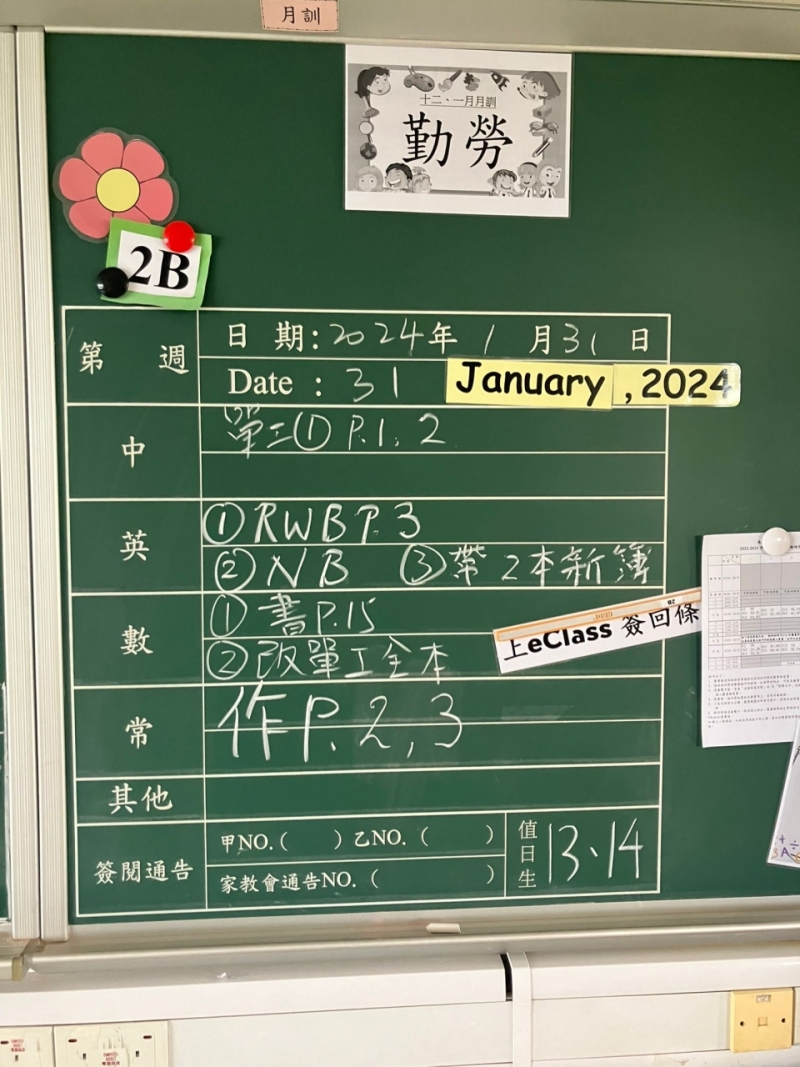 月訓
十二、一月月訓
勤勞
2B
第 週
日 期:2024年 1 月31 日
Date : 31 January ,2024
中
單工① P.1, 2
英
① RWB P.3
② NB ③ 帶 2本新簿
數
① 書P.15
② 改單工全本
上eClass 簽回條
常
作P. 2, 3
其他
簽閱通告
甲NO.( )乙NO.( )
家教會通告NO.( )
值日生
13、14